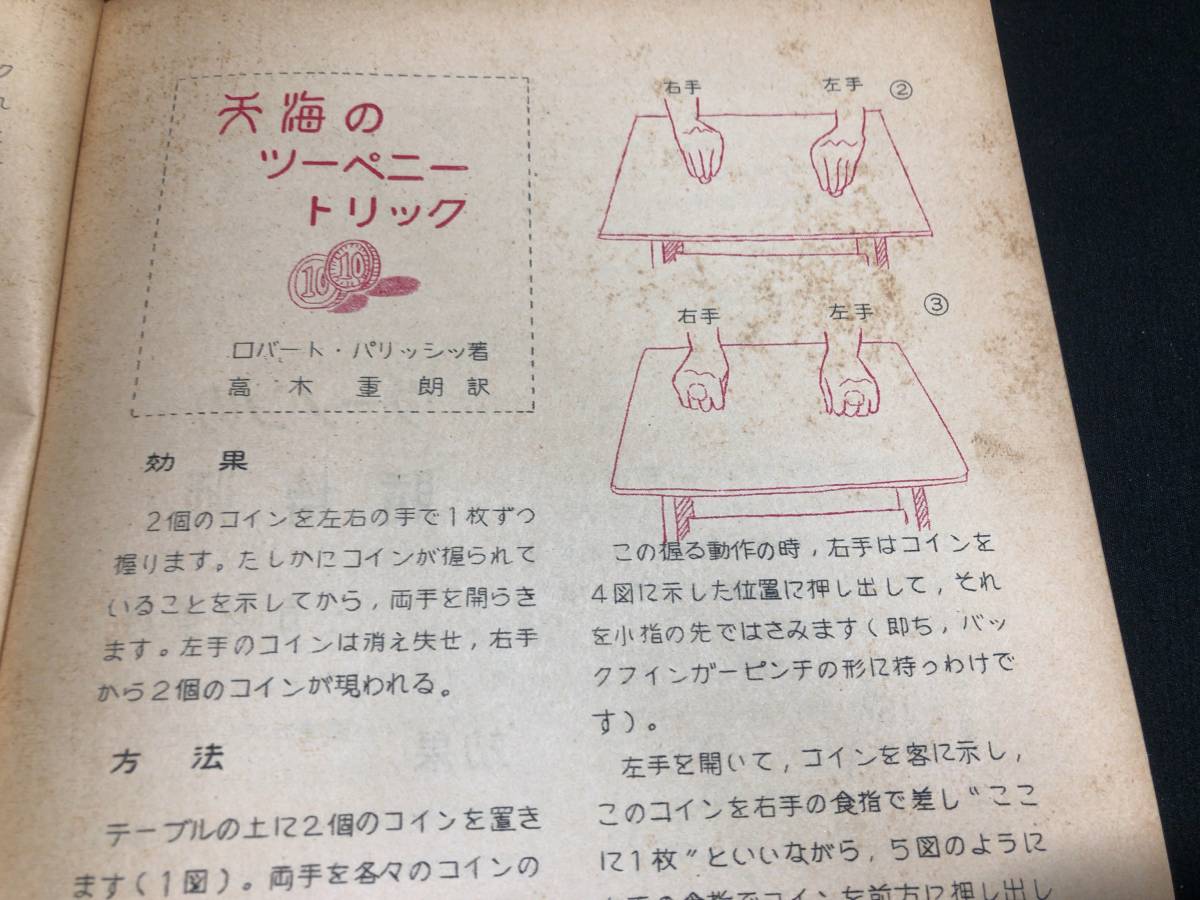 天海の
ツーペニー
トリック
10 10
ロバート・パリッシッ著
高木重朗訳
効果
2個のコインを左右の手で1枚ずつ
握ります。たしかにコインが握られて
いることを示してから,両手を開らき
ます。左手のコインは消え失せ,右手
から2個のコインが現われる。
方法
テーブルの土に2個のコインを置き
ます(1図)。両手を各々のコインの
右手 左手 ②
右手 左手 ③
この握る動作の時,右手はコインを
4図に示した位置に押し出して,それ
を小指の先ではさみます(即ち,バッ
クフインガーピンチの形に持っわけで
す)。
左手を開いて,コインを客に示し,
このコインを右手の食指で差し〝ここ
に1枚〞といいながら,5図のように
の食指でコインを前方に押し出し